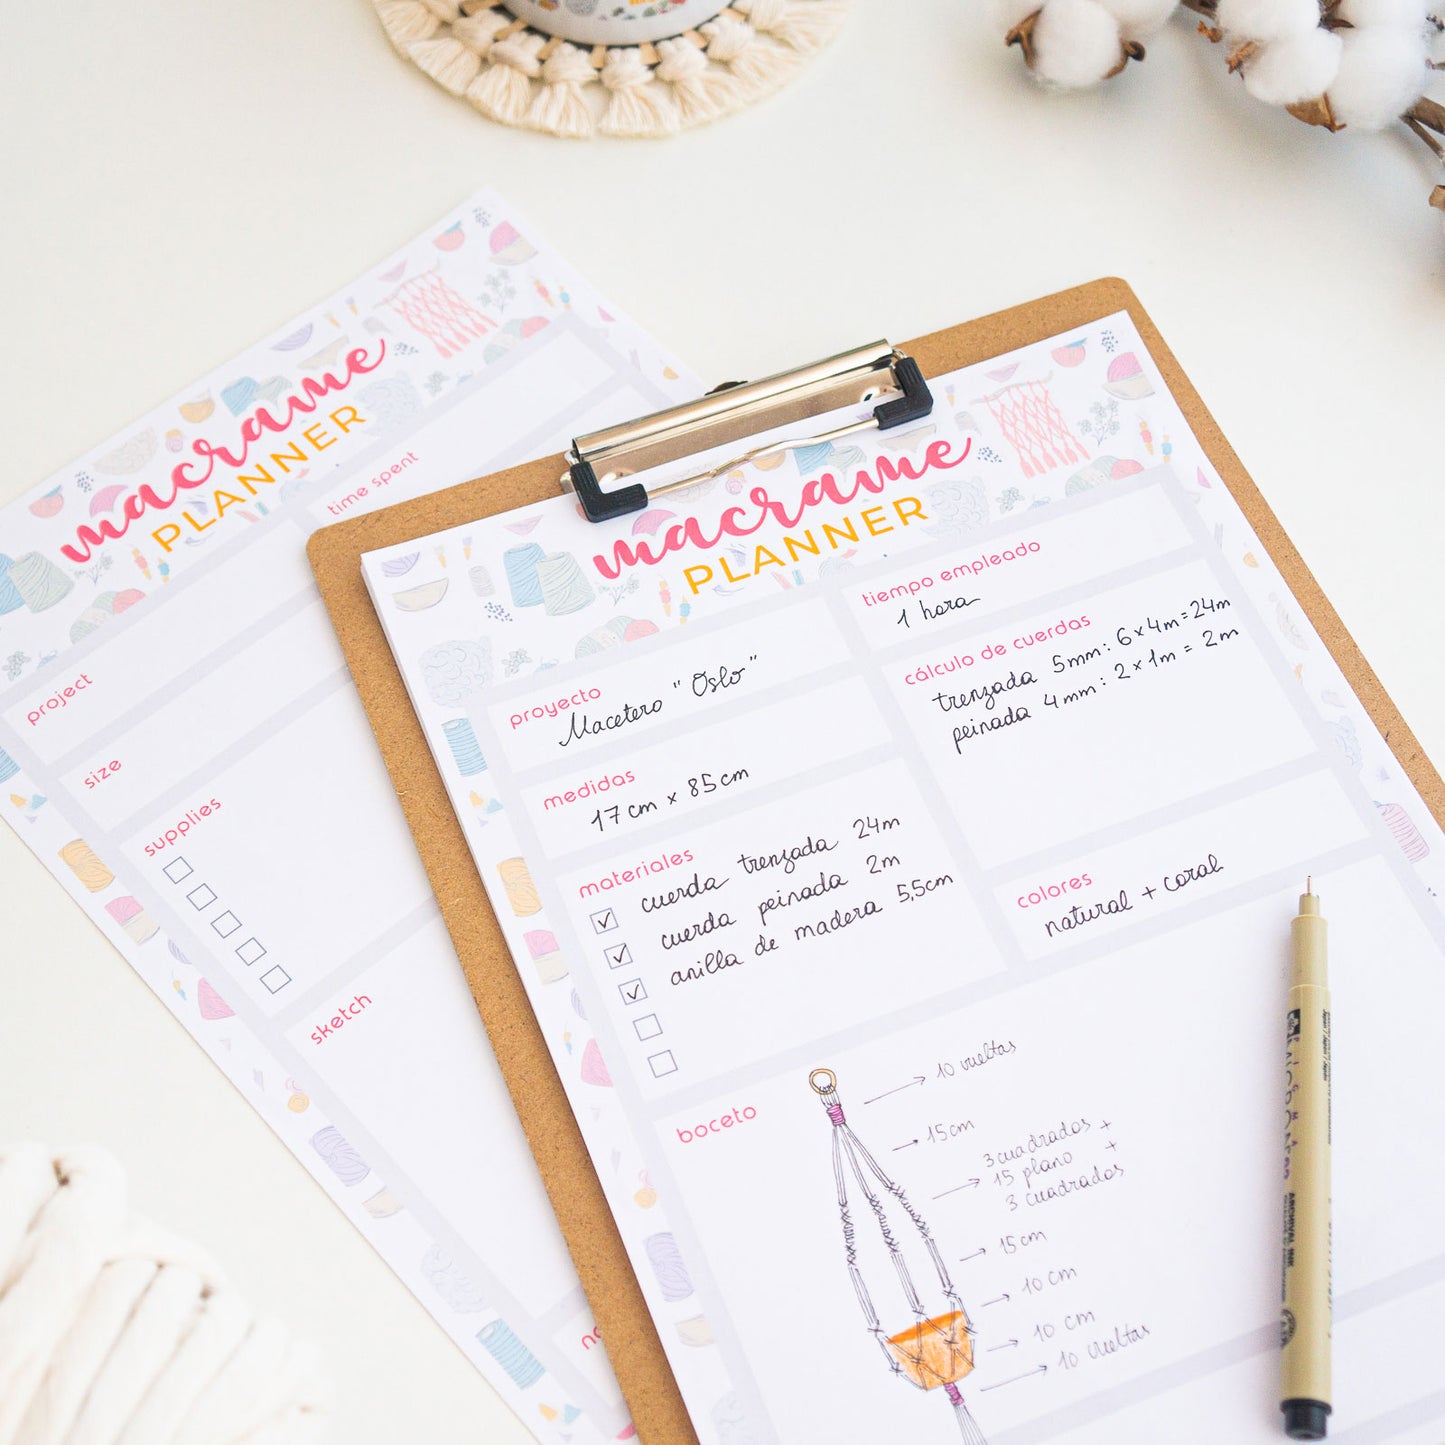 macrame
PLANNER
time spent
project
size
supplies
sketch
macrame
PLANNER
tiempo empleado
1 hora
proyecto
Macetero "Oslo"
cálculo de cuerdas
trenzada 5mm: 6x4m=24m
peinada 4mm: 2x1m = 2m
medidas
17cm x 85cm
materiales
cuerda trenzada 24m
cuerda peinada 2m
anilla de madera 5,5cm
colores
natural + coral
boceto
10 vueltas
15cm
3 cuadrados +
15 plano +
3 cuadrados
15cm
10 cm
10 cm
10 vueltas
ARCHIVAL INK